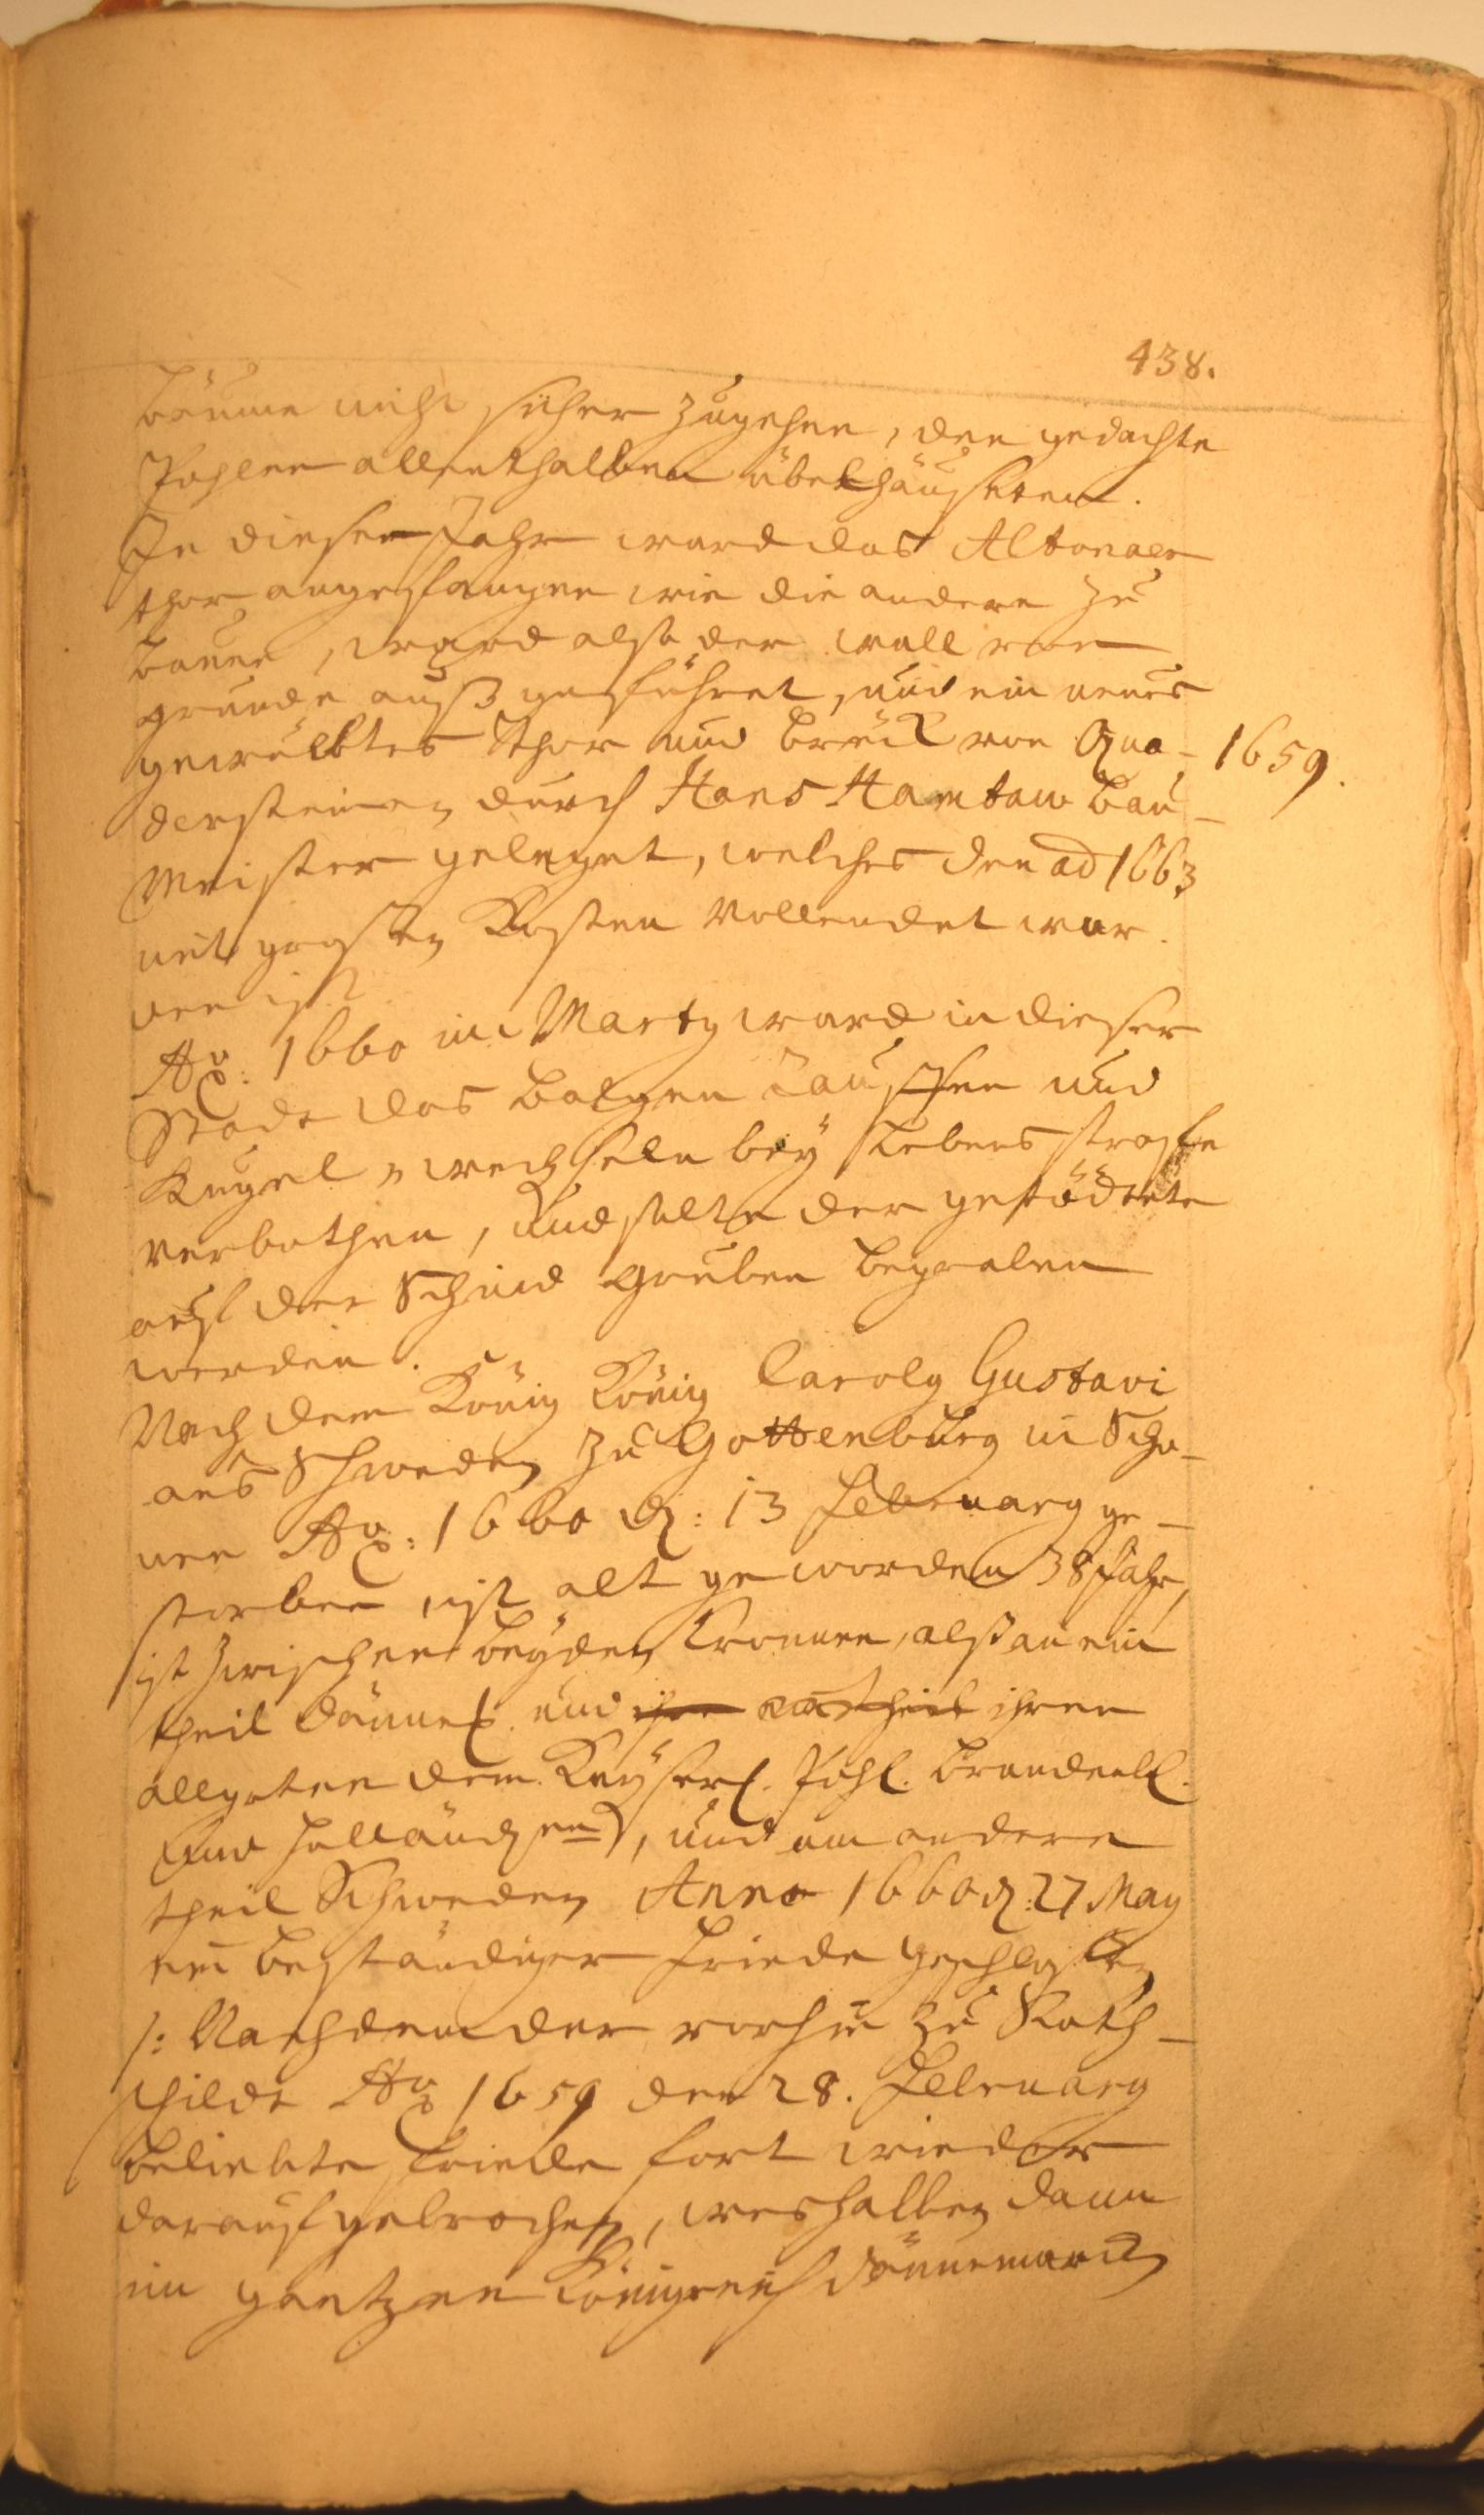 438.
bäume nicht sicher zugehen, den gedachte
Pohlen allenthalben übelhäuseten.
In diesem Jahr ward das Altonaer
thor angefangen wie die andern zu
bauen, ward also der wall von
grunde auß geführet, und ein neues
gewelbtes Thor und brück von Qua- 1659.
dersteinen durch Hans Hamtaw Bau-
Meister geleget, welches den ao 1663
mit grossen Kosten vollendet wor
den ist.
Ao: 1660 im Marty ward in dieser
Stadt das balgen rauffen und
Kugel wechseln bey Lebens straffe
verbothen, und solte der getödtete
auf der Schind gruben begraben
werden.
Nach dem König König Caroly Gustavi
aus Schweden zu Gottenburg in Scho-
nen Ao: 1660 d: 13 February ge-
storben, ist alt geworden 38 Jahr,
ist zwischen beyden Cronnen, alß an ein
theil Dännem. und ihre ihren
allyrten dem Keyserl. Pohl. Brandenb.
und Holländern, und am andern
theil Schweden Anno 1660 d: 27 May
ein beständiger Friede geschlossen
/: Nachdem der vorhin zu Roth-
schildt Ao 1659 den 28. February
beliebte Friede fort wieder
darauf gebrochen, weshalben dann
im gantzen Königreich Dännemarck